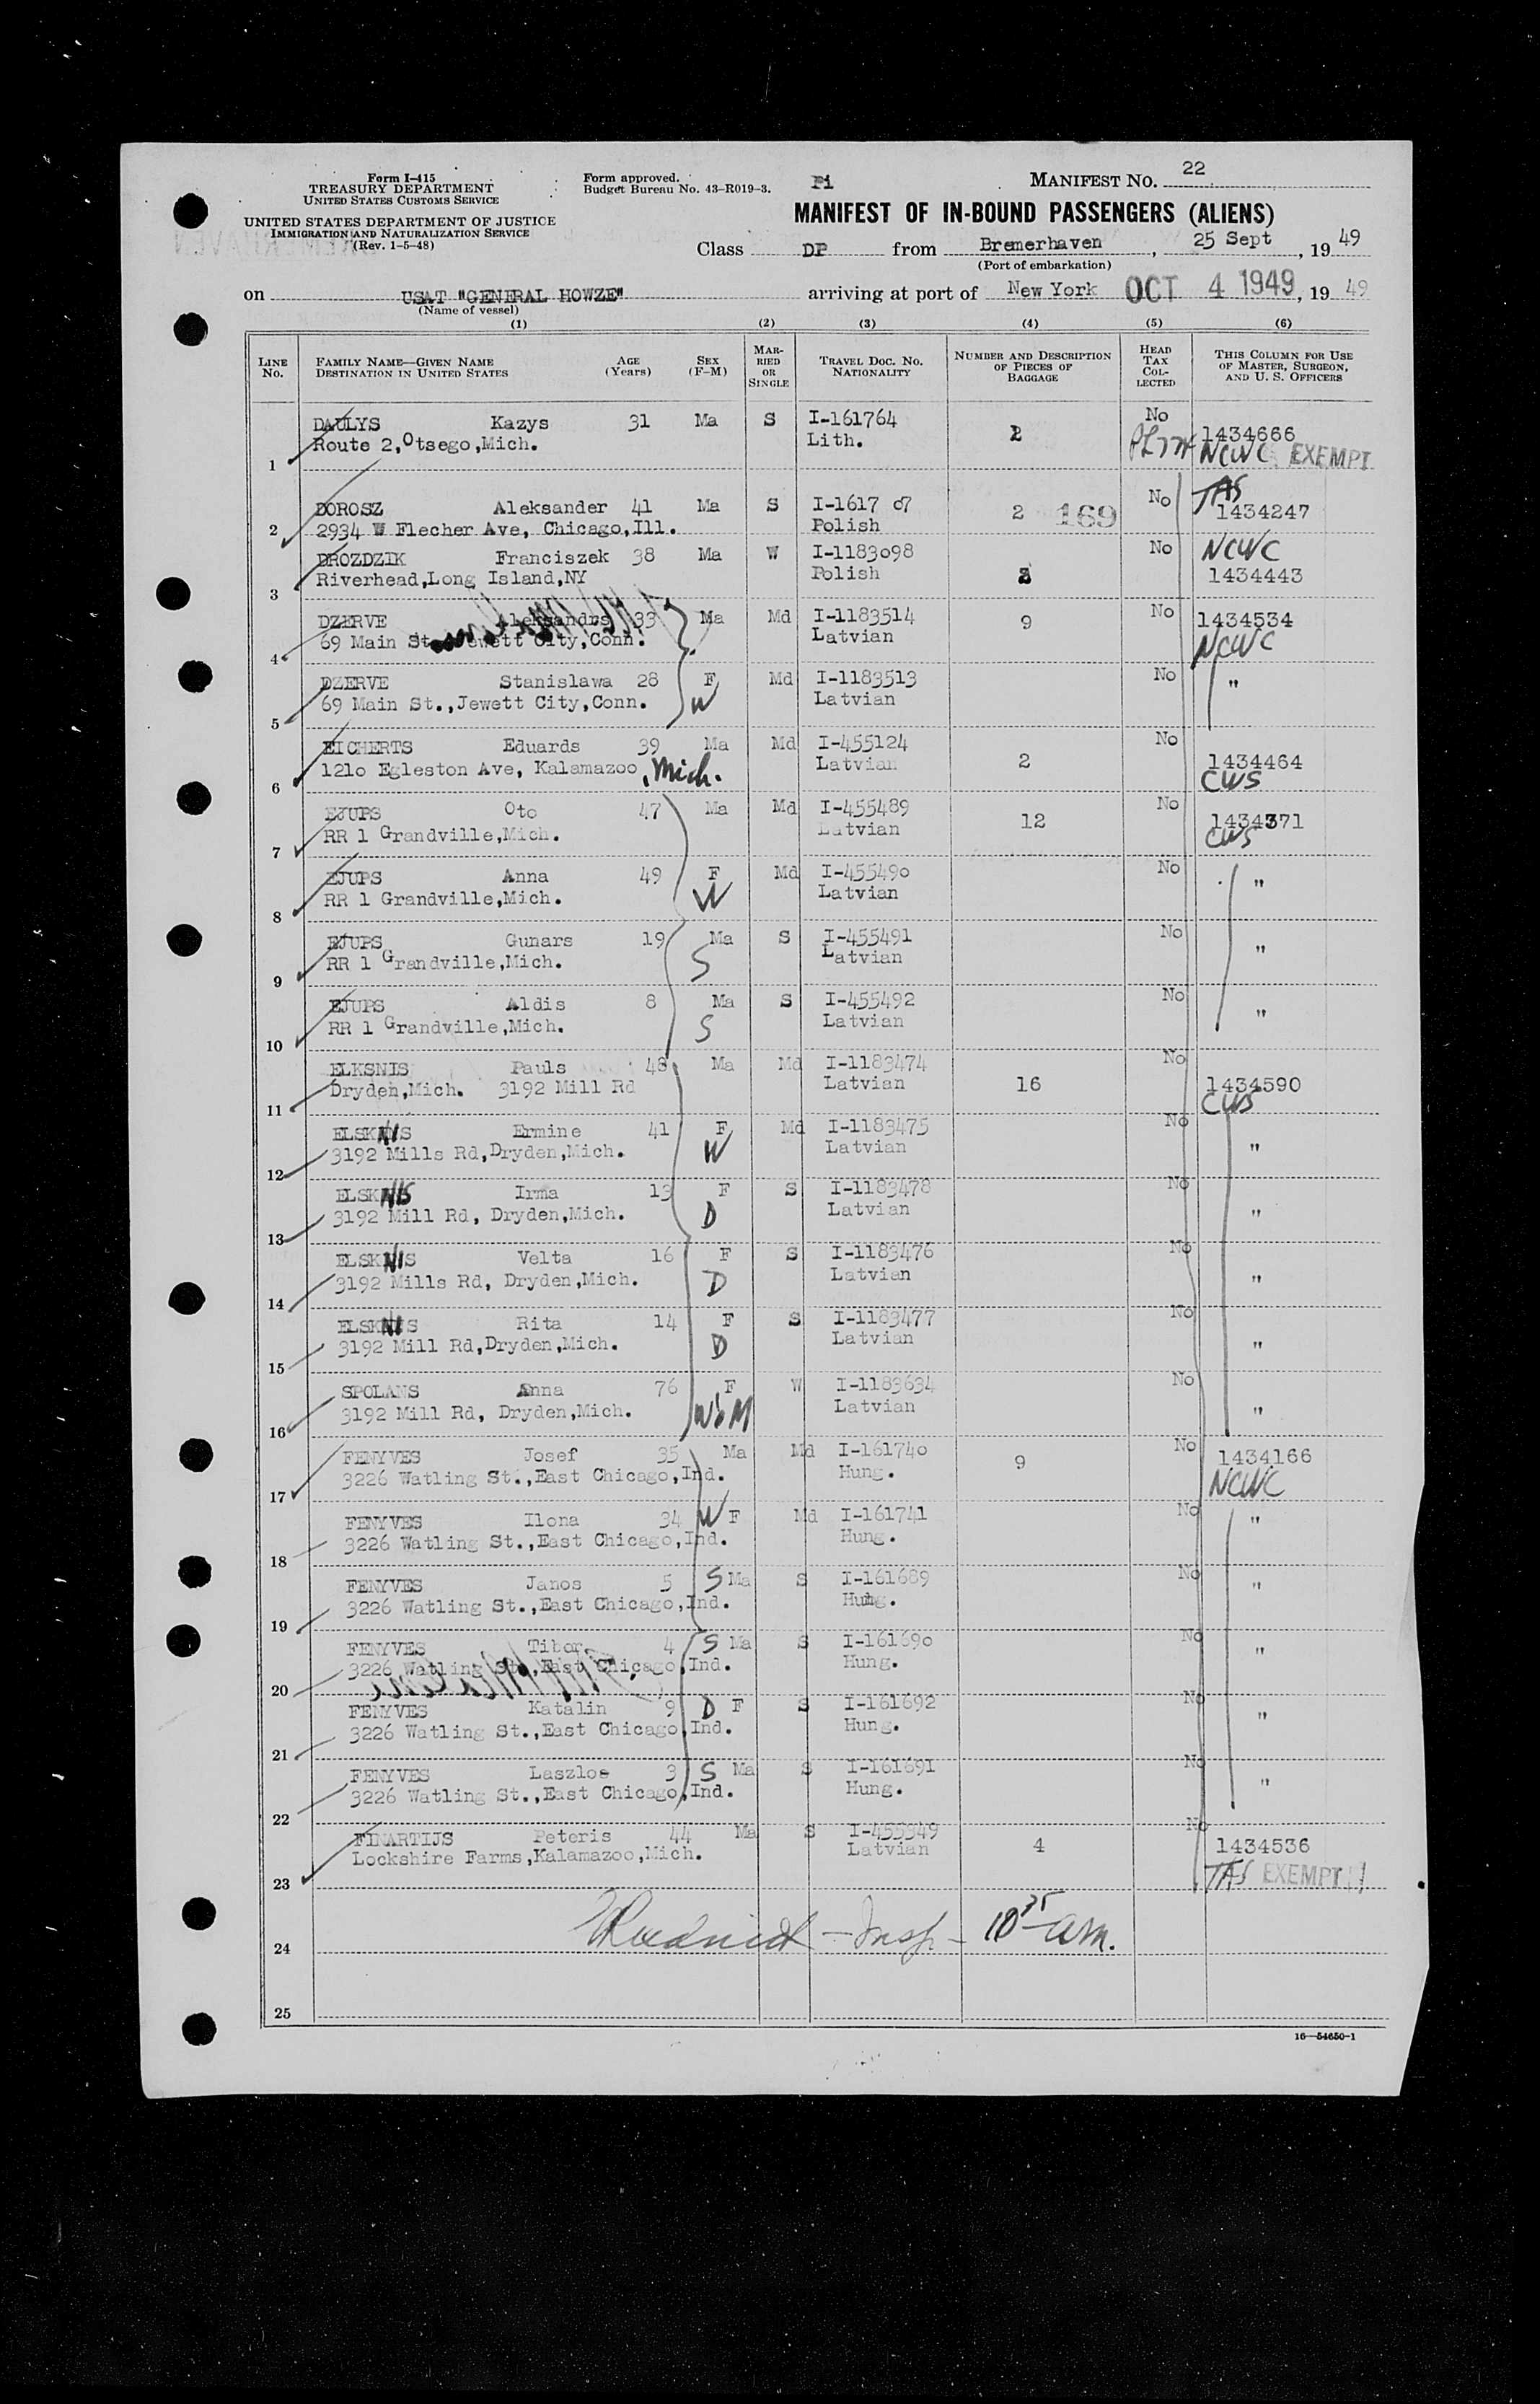 Form I-415
TREASURY DEPARTMENT
UNITED STATES CUSTOMS SERVICE
UNITED STATES DEPARTMENT OF JUSTICE
IMMIGRATION AND NATURALIZATION SERVICE
(Rev. 1-5-48)
Form approved.
Budget Bureau No. 43-R019-3.
Fi
MANIFEST NO. 22
MANIFEST OF IN-BOUND PASSENGERS (ALIENS)
Class DP from Bremerhaven, 25 Sept, 19 49
(Port of embarkation)
on USAT "GENERAL HOWZE" arriving at port of New York OCT 4 1949, 19 49
(Name of vessel)
(1) (2) (3) (4) (5) (6)
LINE NO. FAMILY NAME—GIVEN NAME DESTINATION IN UNITED STATES AGE (Years) SEX (F-M) MARRIED OR SINGLE TRAVEL DOC. NO. NATIONALITY NUMBER AND DESCRIPTION OF PIECES OF BAGGAGE HEAD TAX COLLECTED THIS COLUMN FOR USE OF MASTER, SURGEON, AND U. S. OFFICERS
DAULYS Kazys 31 Ma S I-161764 2 No 1434666
1 Route 2,Otsego,Mich. Lith. NCWC EXEMPT
DOROSZ Aleksander 41 Ma S I-1617 07 2 169 No TAS 1434247
2 2934 W Flecher Ave, Chicago,Ill. Polish
DROZDZIK Franciszek 38 Ma W I-1183098 No NCWC
3 Riverhead,Long Island,NY Polish 1434443
DZERVE Aleksandrs 33 Ma Md I-1183514 9 No 1434534
4 69 Main St., Jewett City,Conn. Latvian NCWC
DZERVE Stanislawa 28 F Md I-1183513 No "
5 69 Main St.,Jewett City,Conn. W Latvian
EICHERTS Eduards 39 Ma Md I-455124 2 No 1434464
6 1210 Egleston Ave, Kalamazoo, Mich. Latvian CWS
EJUPS Oto 47 Ma Md I-455489 12 No 1434371
7 RR 1 Grandville,Mich. Latvian CWS
EJUPS Anna 49 F Md I-455490 No "
8 RR 1 Grandville,Mich. W Latvian
EJUPS Gunars 19 Ma S I-455491 No "
9 RR 1 Grandville,Mich. S Latvian
EJUPS Aldis 8 Ma S I-455492 No "
10 RR 1 Grandville,Mich. S Latvian
ELKSNIS Pauls 48 Ma Md I-1183474 16 No 1434590
11 Dryden,Mich. 3192 Mill Rd Latvian CWS
ELSKNIS Ermine 41 F Md I-1183475 No "
12 3192 Mills Rd,Dryden,Mich. W Latvian
ELSKNIS Irma 13 F S I-1183478 No "
13 3192 Mill Rd, Dryden,Mich. D Latvian
ELSKNIS Velta 16 F S I-1183476 No "
14 3192 Mills Rd, Dryden,Mich. D Latvian
ELSKNIS Rita 14 F S I-1183477 No "
15 3192 Mill Rd,Dryden,Mich. D Latvian
SPOLANS Anna 76 F W I-1183634 No "
16 3192 Mill Rd, Dryden,Mich. W's M Latvian
FENYVES Josef 35 Ma Md I-161740 9 No 1434166
17 3226 Watling St.,East Chicago,Ind. Hung. NCWC
FENYVES Ilona 34 W F Md I-161741 No "
18 3226 Watling St.,East Chicago,Ind. Hung.
FENYVES Janos 5 S Ma S I-161689 No "
19 3226 Watling St.,East Chicago,Ind. Hung.
FENYVES Tibor 4 S Ma S I-161690 No "
20 3226 Watling St.,East Chicago,Ind. Hung.
FENYVES Katalin 9 D F S I-161692 No "
21 3226 Watling St.,East Chicago,Ind. Hung.
FENYVES Laszloe 3 S Ma S I-161691 No "
22 3226 Watling St.,East Chicago,Ind. Hung.
FINARTIJS Peteris 44 Ma S I-455349 4 No 1434536
23 Lockshire Farms,Kalamazoo,Mich. Latvian TAS EXEMPT
24 Insp — 10 35 am.
25
16—54650-1